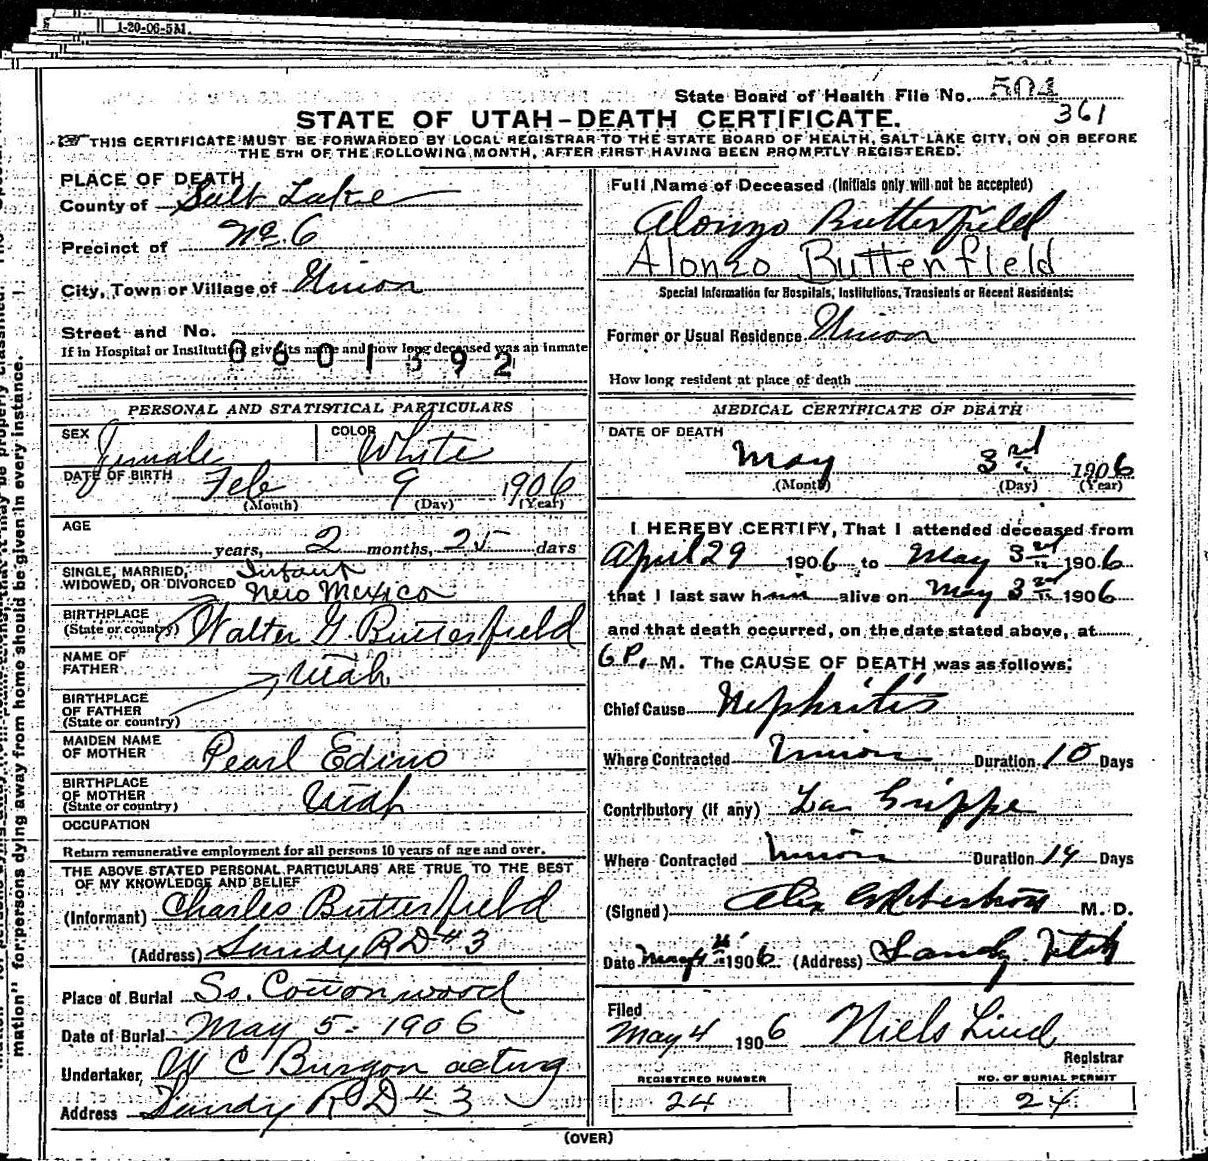 1-20-06-5M.
State Board of Health File No. 504
361
STATE OF UTAH-DEATH CERTIFICATE.
THIS CERTIFICATE MUST BE FORWARDED BY LOCAL REGISTRAR TO THE STATE BOARD OF HEALTH, SALT LAKE CITY, ON OR BEFORE
THE 5TH OF THE FOLLOWING MONTH, AFTER FIRST HAVING BEEN PROMPTLY REGISTERED.
PLACE OF DEATH
County of Salt Lake
Precinct of No. 6
City, Town or Village of Union
Street and No.
If in Hospital or Institution, give its name and how long deceased was an inmate
0601392
PERSONAL AND STATISTICAL PARTICULARS
SEX Female COLOR White
DATE OF BIRTH Feb 9 1906
(Month) (Day) (Year)
AGE
years, 2 months, 25 days
SINGLE, MARRIED, Infant
WIDOWED, OR DIVORCED New Mexico
BIRTHPLACE
(State or country) Walter G. Butterfield
NAME OF
FATHER Utah
BIRTHPLACE
OF FATHER
(State or country)
MAIDEN NAME
OF MOTHER Pearl Edino
BIRTHPLACE
OF MOTHER
(State or country) Utah
OCCUPATION
Return remunerative employment for all persons 10 years of age and over.
THE ABOVE STATED PERSONAL PARTICULARS ARE TRUE TO THE BEST
OF MY KNOWLEDGE AND BELIEF
(Informant) Charles Butterfield
(Address) Sandy R D # 3
Place of Burial So. Cottonwood
Date of Burial May 5 - 1906
Undertaker, W C Burgon acting
Address Sandy R D # 3
Full Name of Deceased (Initials only will not be accepted)
Alonzo Butterfield
Alonzo Buttenfield
Special Information for Hospitals, Institutions, Transients or Recent Residents:
Former or Usual Residence Union
How long resident at place of death
MEDICAL CERTIFICATE OF DEATH
DATE OF DEATH
May 3rd 1906
(Month) (Day) (Year)
I HEREBY CERTIFY, That I attended deceased from
April 29 1906 to May 3rd 1906
that I last saw him alive on May 3rd 1906
and that death occurred, on the date stated above, at
6 P. M. The CAUSE OF DEATH was as follows:
Chief Cause Nephritis
Where Contracted Union Duration 10 Days
Contributory (if any) La Grippe
Where Contracted Union Duration 14 Days
(Signed) Alex M. D.
Date May 4 1906 (Address) Sandy Utah
Filed
May 4 1906 Niels Lind
Registrar
REGISTERED NUMBER
24
NO. OF BURIAL PERMIT
24
(OVER)
mation" for persons dying away from home should be given in every instance.